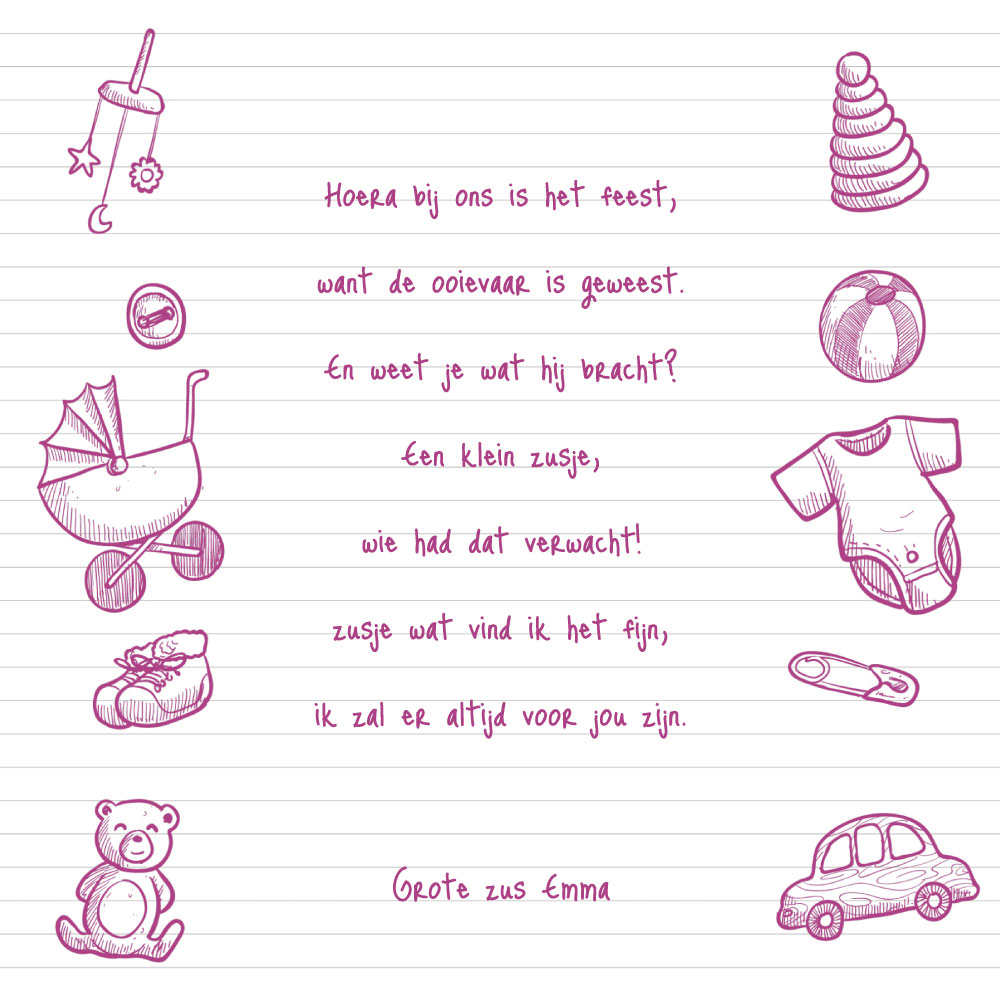 Hoera bij ons is het feest,
want de ooievaar is geweest.
En weet je wat hij bracht?
Een klein zusje,
wie had dat verwacht!
zusje wat vind ik het fijn,
ik zal er altijd voor jou zijn.
Grote zus Emma